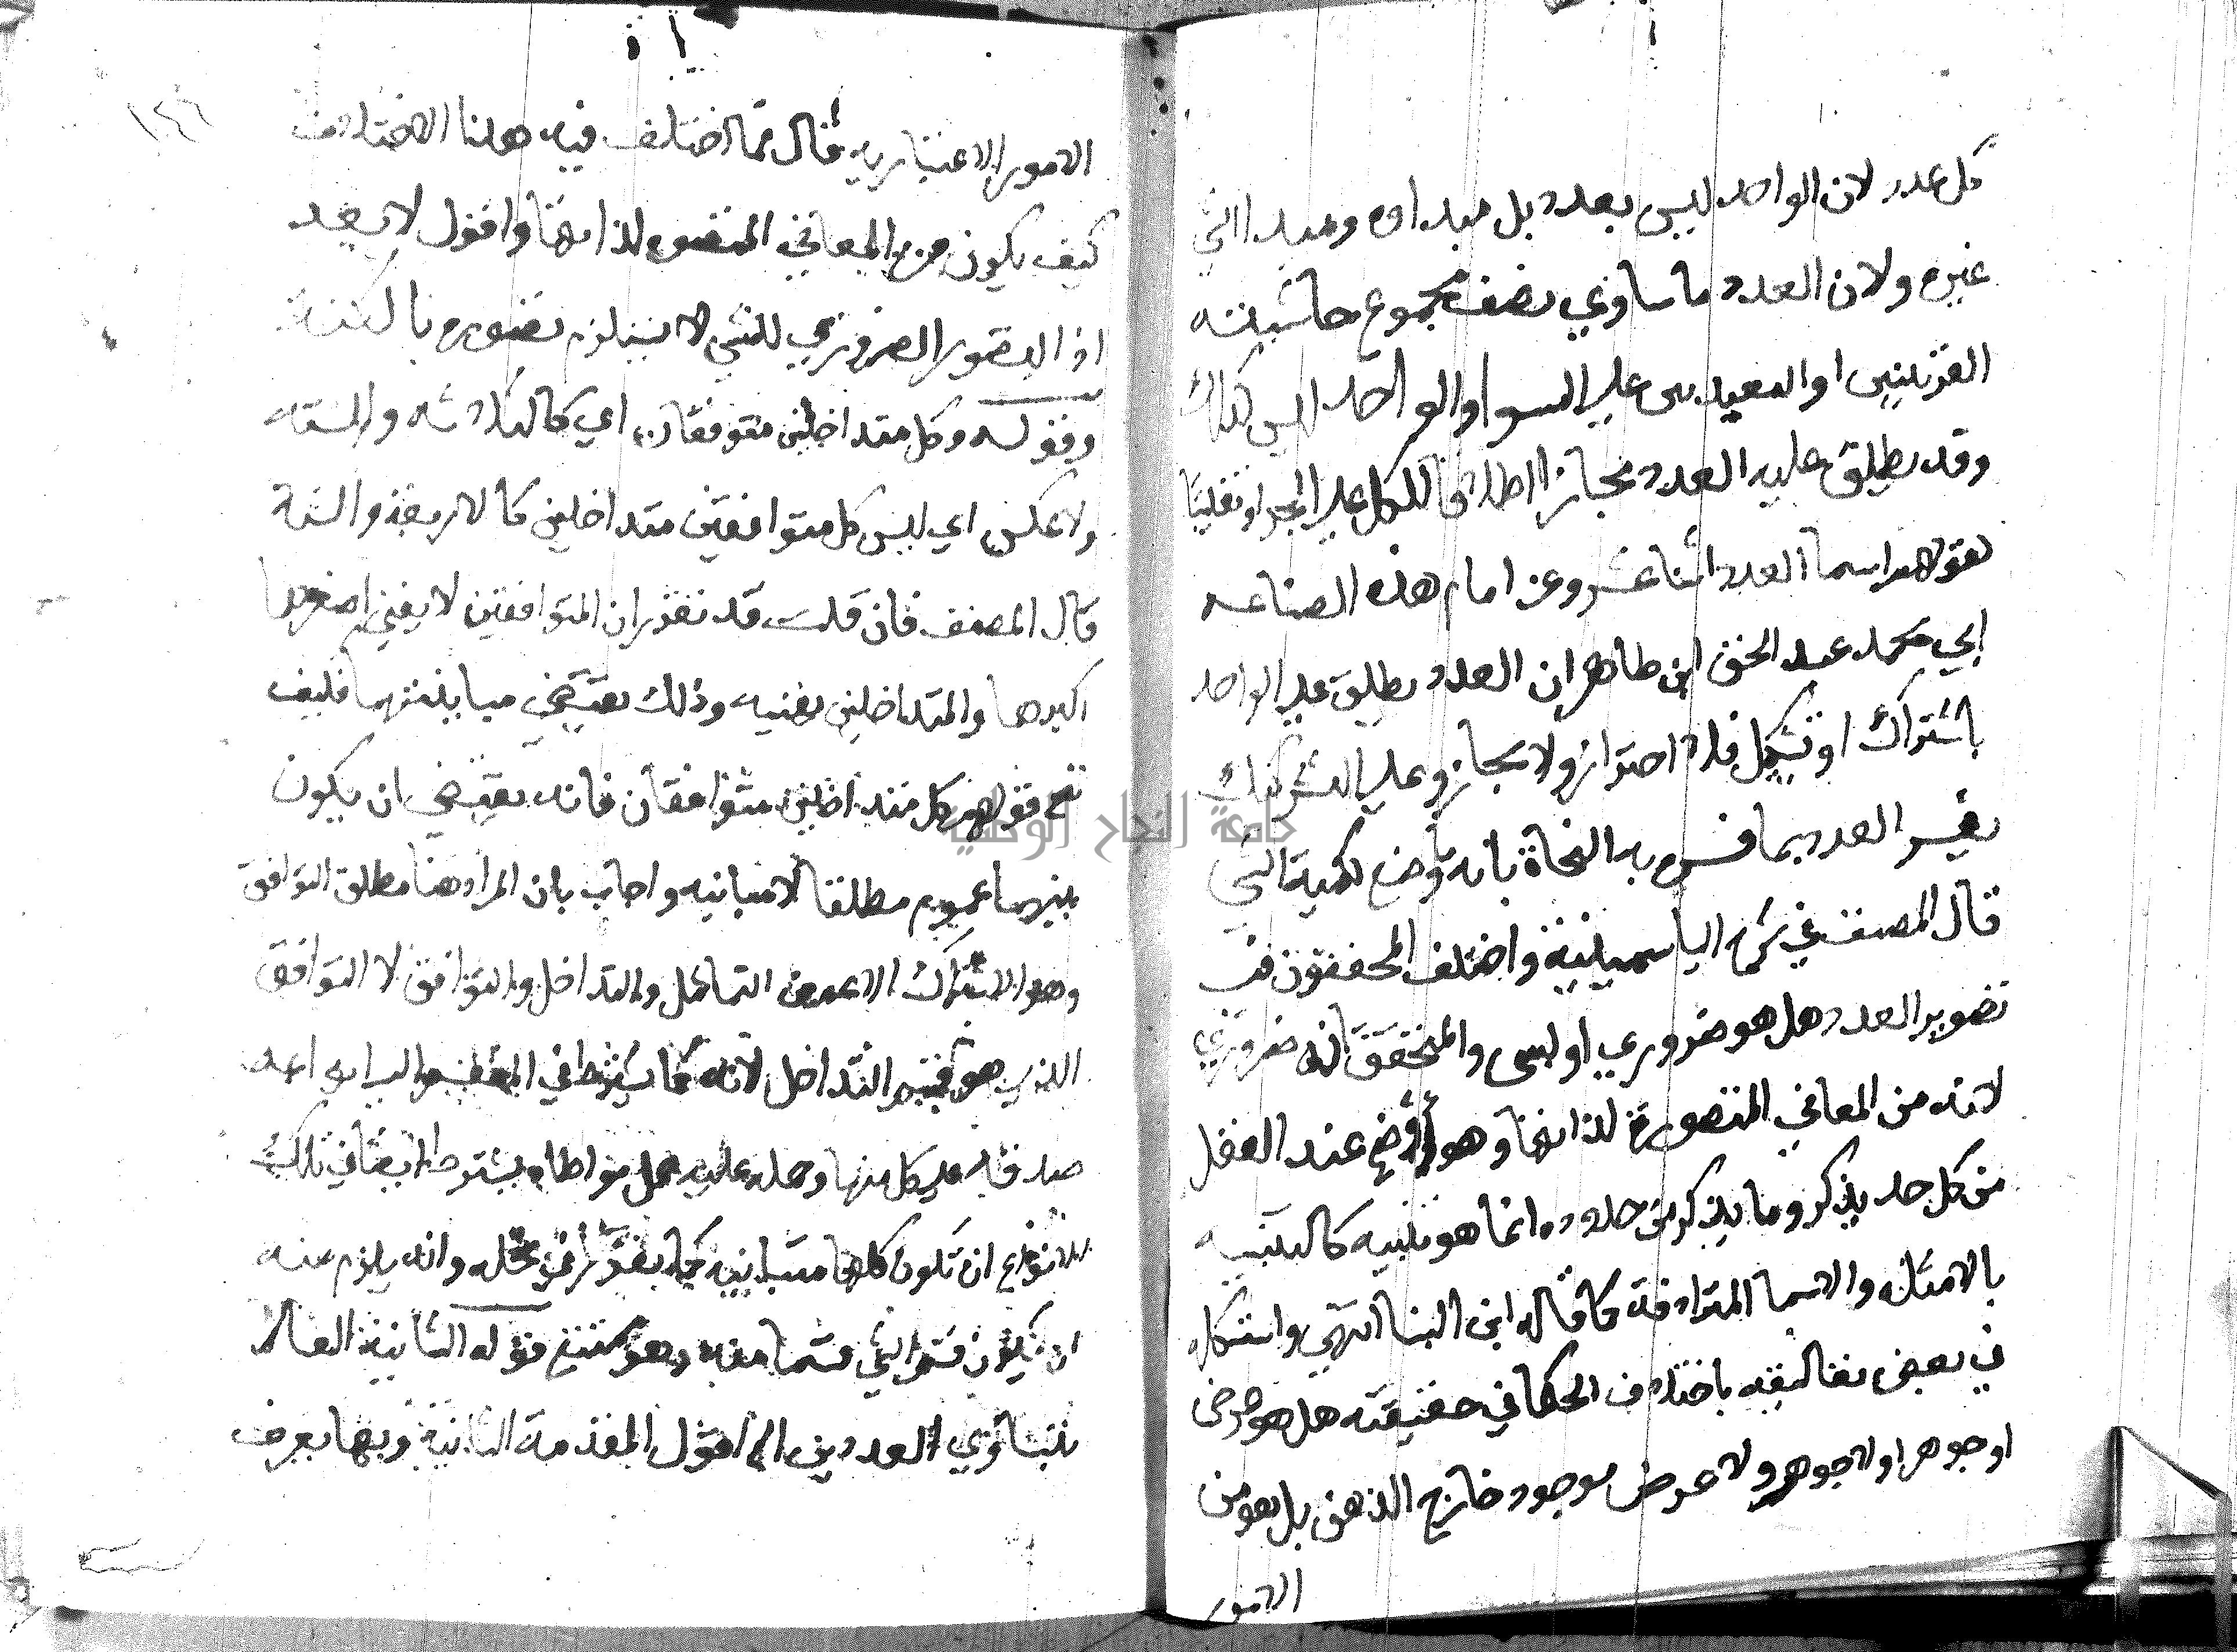 كل عدد لان الواحد ليس بعدد بل مبداوه ومبدا الشي
غيره ولان العدد ما ساوي نصف مجموع حاشيته
القريبتين او البعيدتين علي السوا والواحد ليس كذلك
وقد يطلق عليه العدد مجازا اطلاقا للكل علي الجزء او تغليبا
كقولهم اسما العدد اثنا عشر وعن امام هذه الصناعه
ابي محمد عبد الحق ابن طاهر ان العدد يطلق علي الواحد
باشتراك او تشكيك فلا احتراز ولا مجاز وعلي التشكيك
يفسر العدد بما فسره به النحاة بانه ما وضع لكمية الشي
قال المصنف في شرح الياسمينية واختلف المحققون في
تصوير العدد هل هو ضروري او ليس والمحقق انه ضروري
لانه من المعاني المتصورة لذاتها وهو أوضح عند العقل
من كل حد يذكر وما يذكر من حدوده انما هو تنبيه كالتنبيه
بالامثله والاسما المترادفة كما قاله ابن البنا انتهي واستشكله
في بعض تقاليقه باختلاف الحكما في حقيقته هل هو عرض
او جوهر او لا جوهر ولا عرض موجود خارج الذهن بل هو من
الامور
١٤٦
الامور الاعتباريه قال فما اختلف فيه هذا الاختلاف
كيف يكون من المعاني المتصوره لذاتها واقول لا يبعد
اذ التصور الضروري للشي لا يستلزم تصوره بالكنه
وقوله وكل متداخلين متوافقان اي كالثلاثه والسته
ولا عكس اي ليس كل متوافقين متداخلين كالاربعة والستة
قال المصنف فان قلت قد تقرر ان المتوافقين لا يفني اصغرهما
اكبرهما والمتداخلين يفنيه وذلك يقتضي مباينتهما فكيف
صح قولهم كل متداخلين متوافقان فانه يقتضي ان يكون
بينهما عموم مطلقا لا مباينه واجاب بان المراد هنا مطلق التوافق
وهو الاشتراك الاعم من التماثل والتداخل والتوافق لا التوافق
الذي هو قسيم التداخل لانه كما يشترط في المقسم
صدقه علي كل منها وحمله عليه حمل مواطاه يشترط ايضا في تلك
الانواع ان تكون كلها متباينه كما تقرر في محله وانه يلزم منه
ان يكون قسم الشي قسما منه وهو ممتنع قوله الثانية العالم
بتساوي العددين الخ اقول المقدمة الثانية وبها يعرف
جامعة النجاح الوطنية